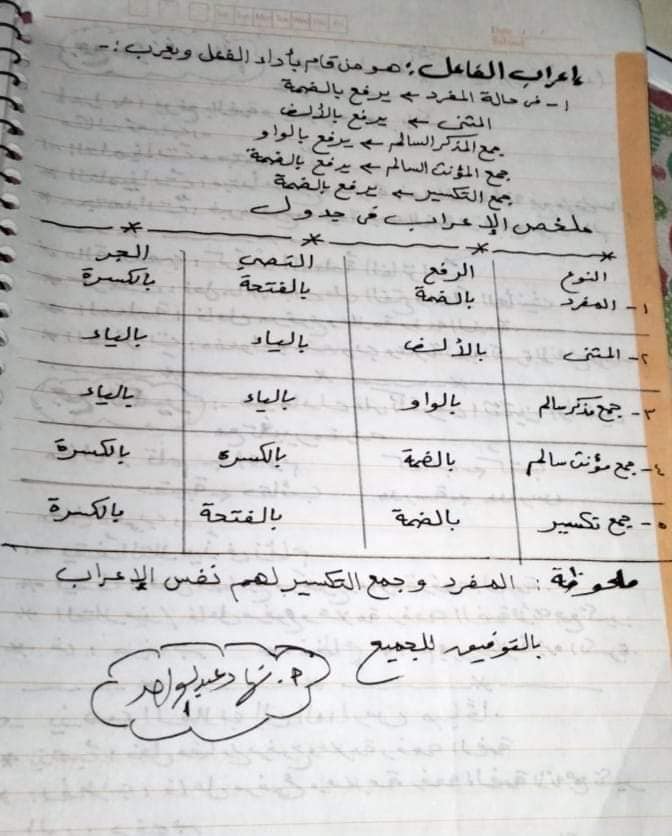 إعراب الفاعل: هو من قام بأداء الفعل ويعرب:-
١- فى حالة المفرد ← يرفع بالضمة
المثنى ← يرفع بالألف
جمع المذكر السالم ← يرفع بالواو
جمع المؤنث السالم ← يرفع بالضمة
جمع التكسير ← يرفع بالضمة
ملخص الإعراب فى جدول
النوع الرفع النصب الجر
١- المفرد بالضمة بالفتحة بالكسرة
٢- المثنى بالألف بالياء بالياء
٣- جمع مذكر سالم بالواو بالياء بالياء
٤- جمع مؤنث سالم بالضمة بالكسره بالكسرة
٥- جمع تكسير بالضمة بالفتحة بالكسرة
ملحوظة: المفرد وجمع التكسير لهم نفس الإعراب
بالتوفيق للجميع
عبدالواحد